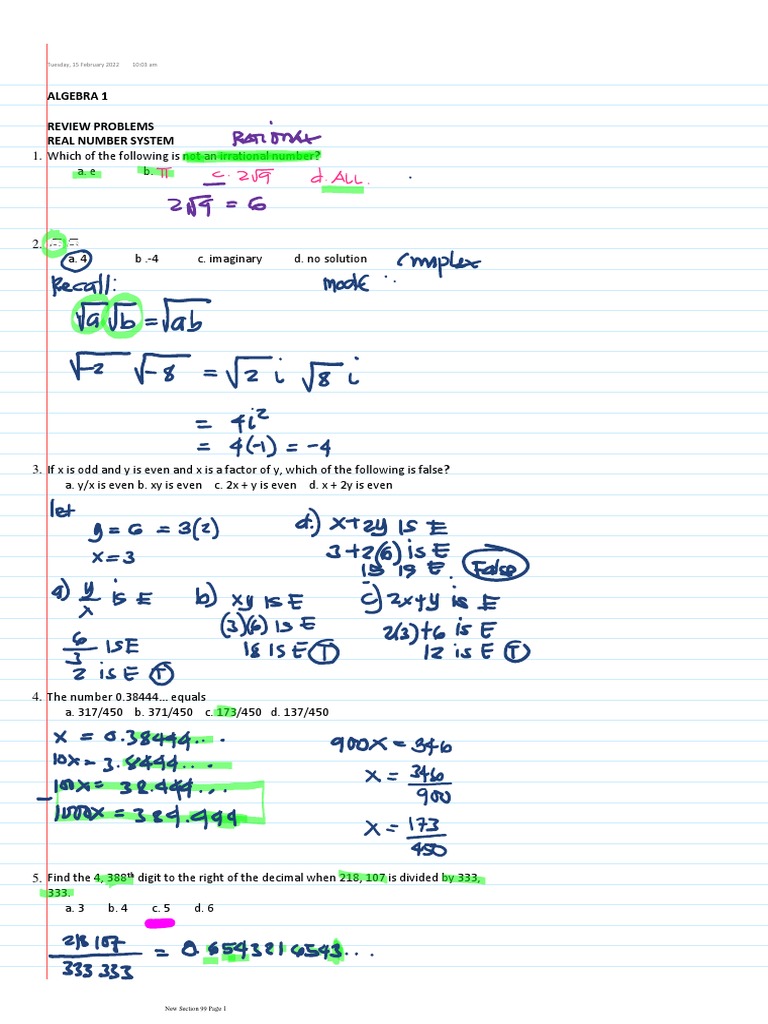 Tuesday, 15 February 2022 10:03 am
ALGEBRA 1
REVIEW PROBLEMS
REAL NUMBER SYSTEM RATIONAL
1. Which of the following is not an irrational number?
a. e b. π c. 2√9 d. ALL.
2√9 = 6
2.
a. 4 b .-4 c. imaginary d. no solution Complex
Recall: mode
√a √b = √ab
√-2 √-8 = √2 i √8 i
= 4i²
= 4(-1) = -4
3. If x is odd and y is even and x is a factor of y, which of the following is false?
a. y/x is even b. xy is even c. 2x + y is even d. x + 2y is even
let
y = 6 = 3(2)
x = 3
d.) x+2y is E
3+2(6) is E
15 is E. False
a) y/x is E
6/3 is E
2 is E T
b) xy is E
(3)(6) is E
18 is E T
c) 2x+y is E
2(3)+6 is E
12 is E T
4. The number 0.38444... equals
a. 317/450 b. 371/450 c. 173/450 d. 137/450
x = 0.38444...
10x = 3.8444...
100x = 38.444...
- 1000x = 384.444
900x = 346
x = 346/900
x = 173/450
5. Find the 4, 388th digit to the right of the decimal when 218, 107 is divided by 333,
333.
a. 3 b. 4 c. 5 d. 6
218 107/333 333 = 0.6543216543...
New Section 99 Page 1